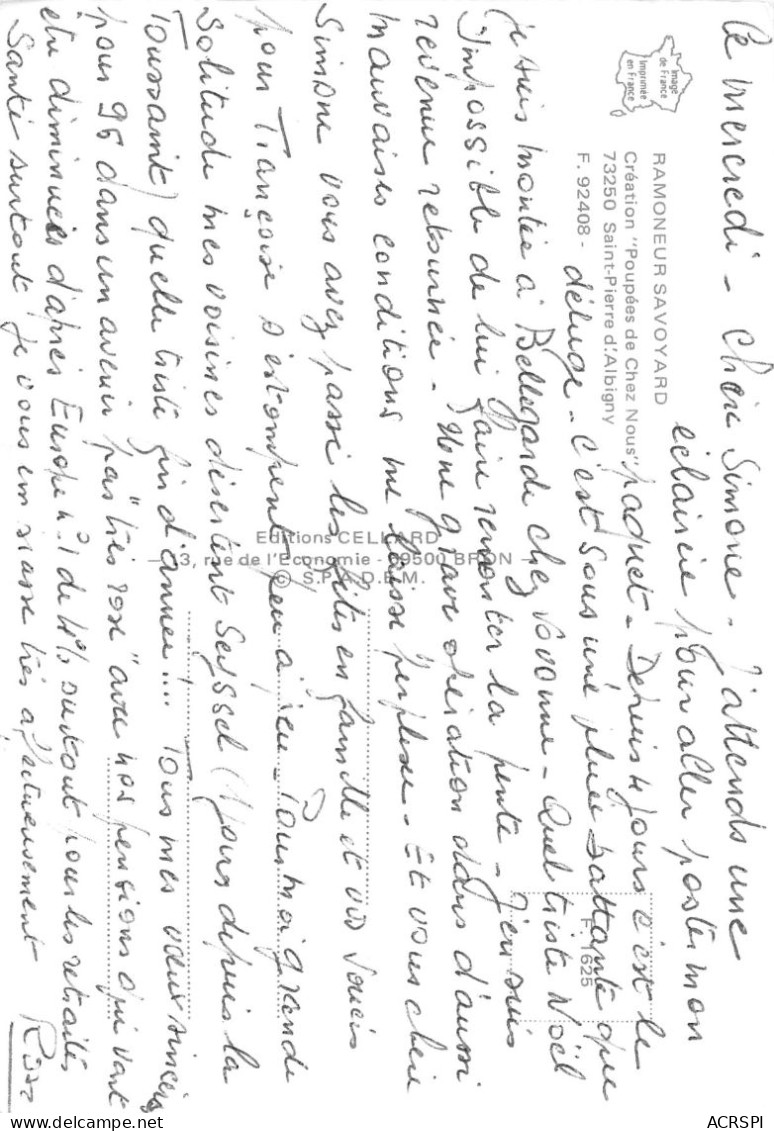 Ce mercredi - Chère Simone - J'attends une
éclaircie pour aller poster mon
paquet - Depuis 4 jours c'est le
déluge - C'est sous une pluie battante que
je suis montée à Bellegarde chez Yvonne - Quel triste Noël
Impossible de lui faire remonter la pente - J'en suis
revenue retournée - Une grave opération dans d'aussi
mauvaises conditions me laisse perplexe - Et vous chère
Simone vous avez passé les fêtes en famille et vos soucis
pour Françoise s'estompent peu à peu - Pour moi grande
Solitude mes voisines désertent Seyssel (1 jours depuis la
Toussaint) quelle triste fin d'année !... Tous mes vœux sincères
pour 96 dans un avenir pas "très rose" avec nos pensions qui vont
être diminuées d'après Europe n°1 de 4% surtout pour les retraités
Santé surtout je vous embrasse très affectueusement
RAMONEUR SAVOYARD
Création "Poupées de Chez Nous"
73250 Saint-Pierre d'Albigny
F. 92408 -
Image
de France
Imprimée
en France
Editions CELLARD
rue de l'Economie - 69500 BRON
© S.P.A.D.E.M.
F 1625
ACRSPI